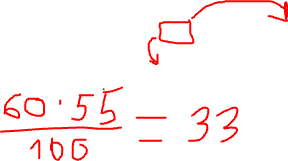 60·55
100
= 33